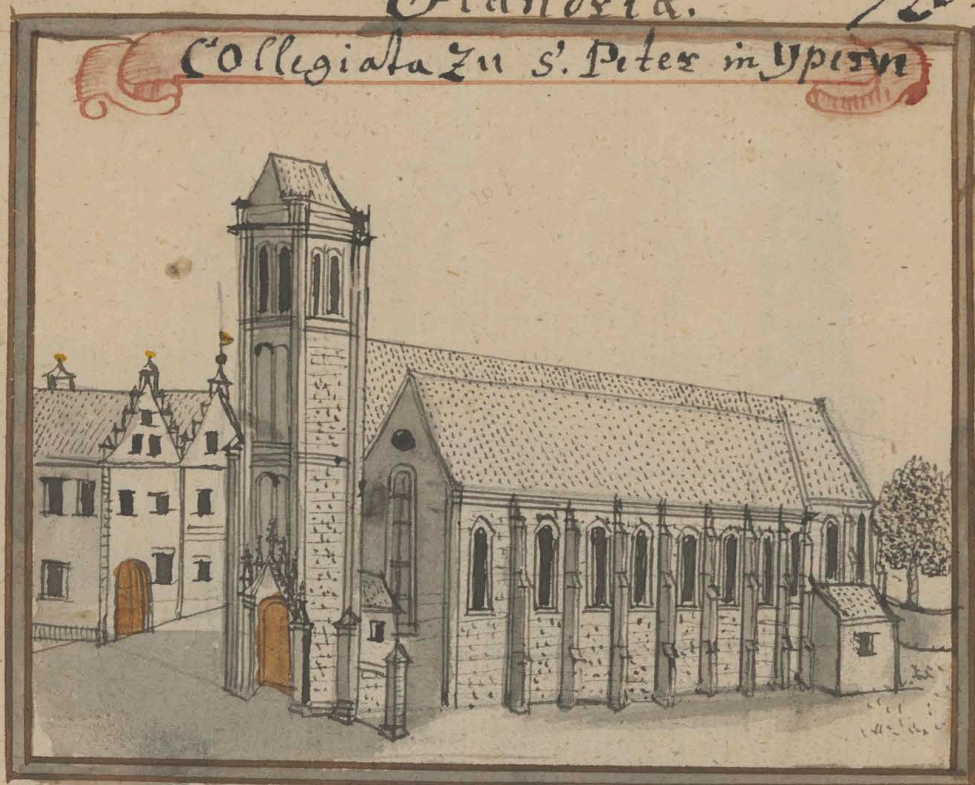 Flandria.
Collegiata Zu S. Peter in Ypern